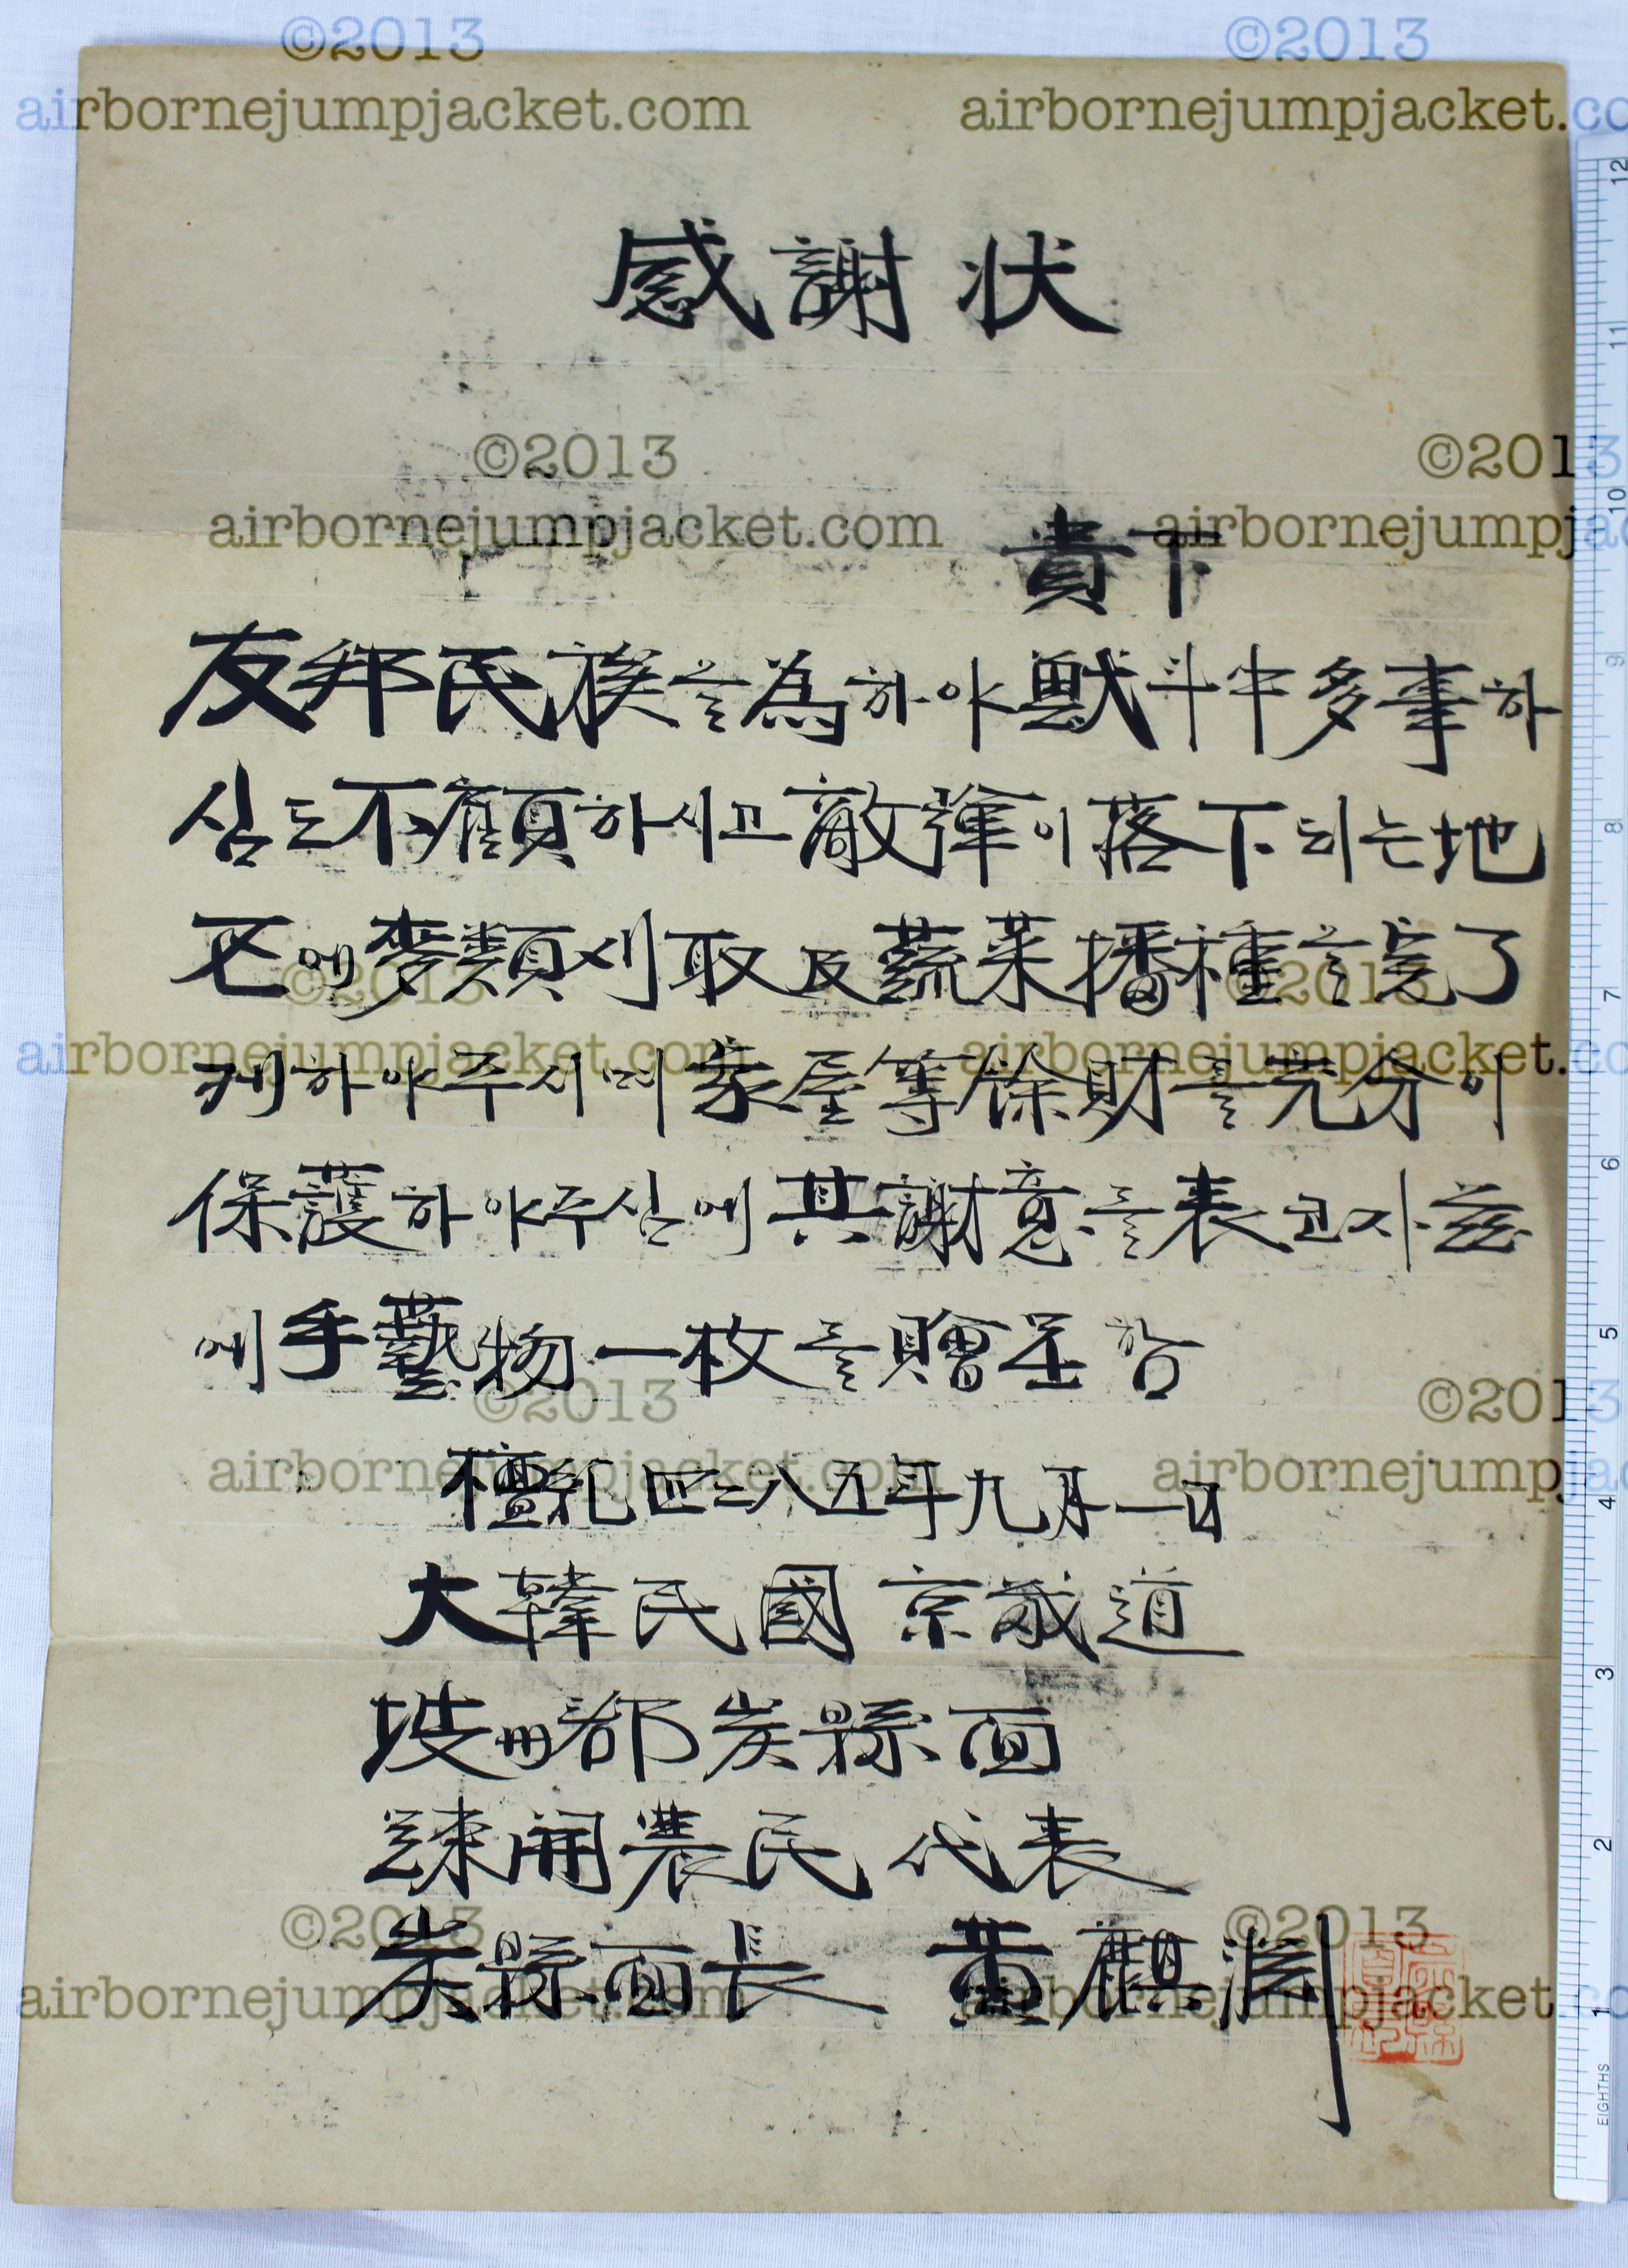 ©2013 ©2013
airbornejumpjacket.com airbornejumpjacket.co
感謝状
©2013 ©2013
airbornejumpjacket.com airbornejumpja
貴下
友邦民族를為하야獸斗中多事하
심도不顧하시고敵弾이落下되는地
区에麥類刈取及蔬菜播種를完了
케하야주시며家屋等餘財를充分이
保護하야주심에其謝意를表코자玆
에手藝物一枚를贈呈함
©2013 ©2013
airbornejumpjacket.com airbornejumpjacket.co
©2013 ©2013
airbornejumpjacket.com airbornejumpja
檀紀四二八五年九月一日
大韓民國 京畿道
坡州郡炭縣面
疎開農民 代表
炭縣面長 黃麒淵
©2013 ©2013
airbornejumpjacket.com airbornejumpjacket.co
12
11
10
9
8
7
6
5
4
3
2
1
EIGHTHS